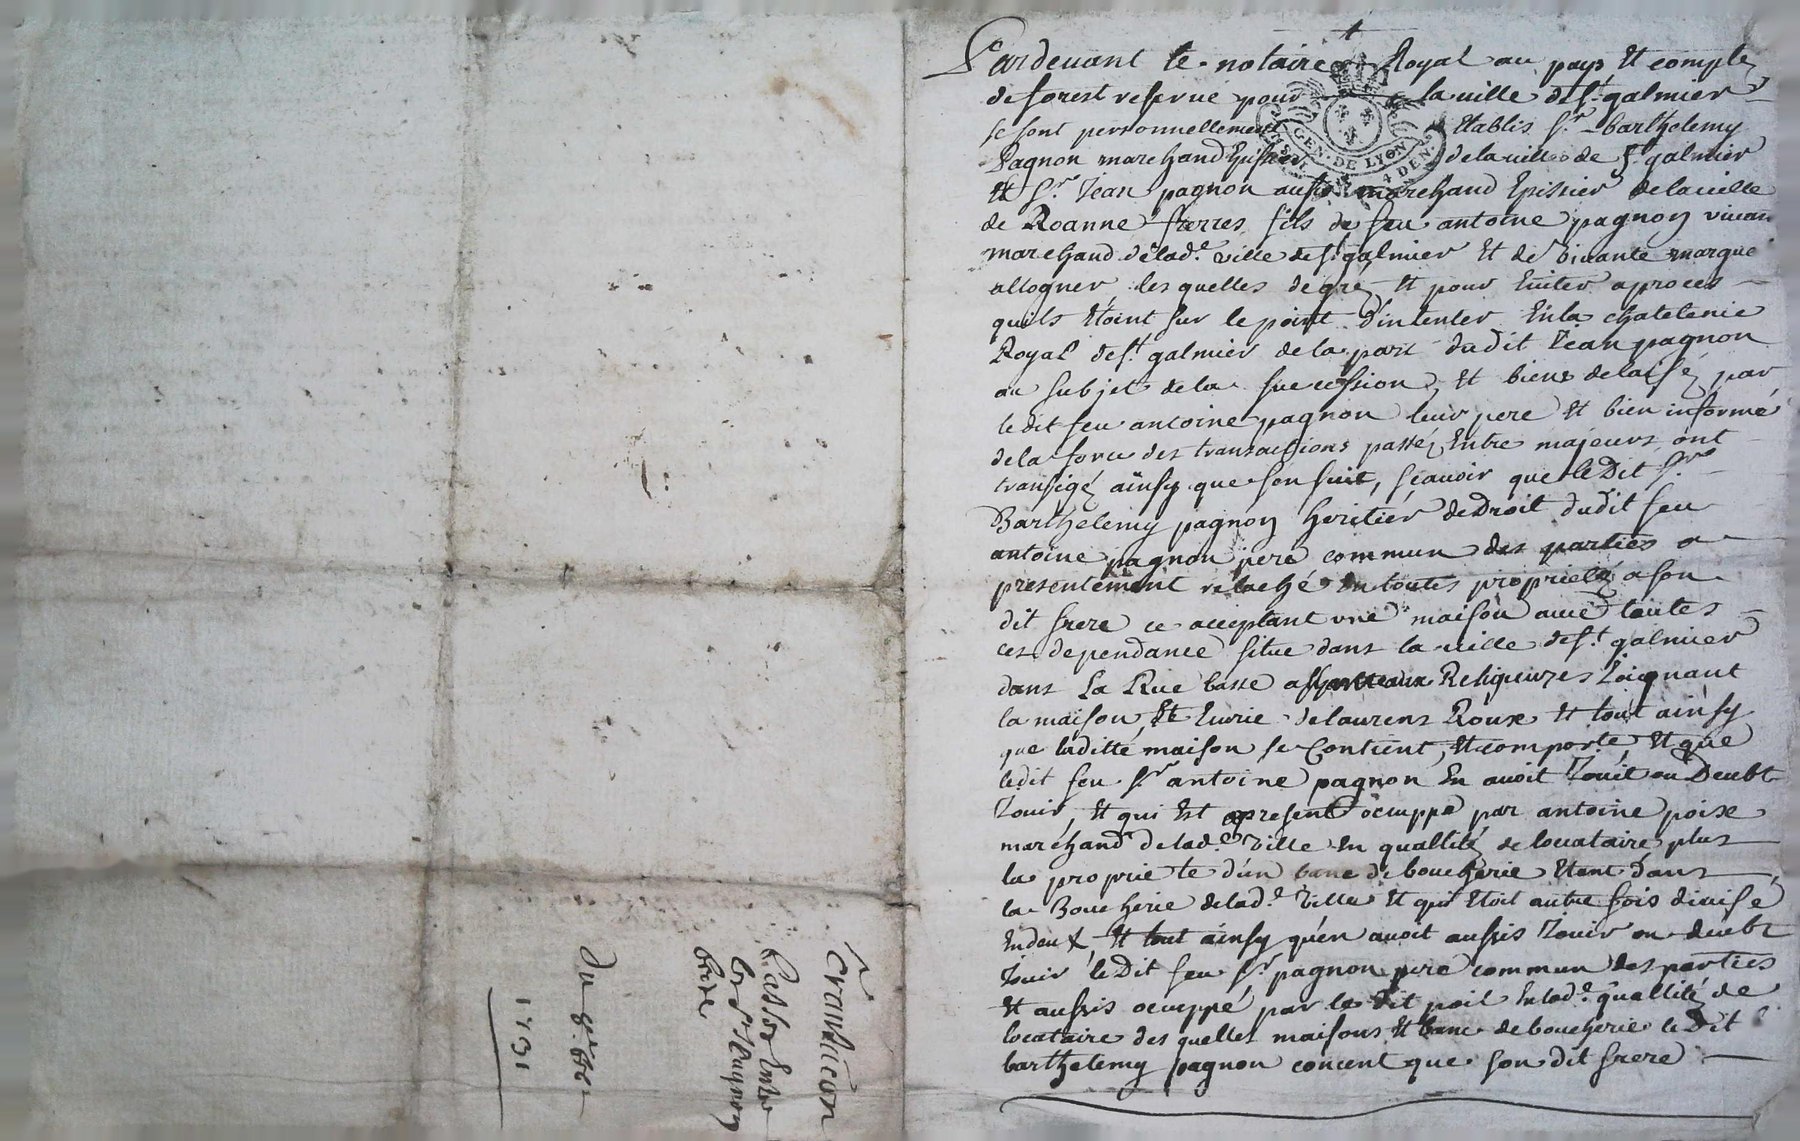 Pardevant le notaire Royal au pays Et compté
de forest reservé pour la ville de St galmier
se sont personnellement Etablis Sr barthelemy
Pagnon marchand Epissier de la ville de St galmier
Et Sr Jean pagnon aussy marchand Epissier de la ville
de Roanne freres, fils de feu antoine pagnon vivant
marchand de lad.e ville de St galmier Et de vivante marque
allogner lesquelles de gré Et pour Eviter a proces
quils Etoint sur le point d'intenter En la chatelenie
Royal de St galmier de la part dudit Jean pagnon
au subjet de la succession, Et biens delaissé par
le dit feu antoine pagnon leur pere Et bien informé
de la force des transactions passéz Entre majeurs ont
transigé aïnsy que sen suit, scavoir que le Dit Sr
Barthelemy pagnon heritier de Droit dudit feu
antoine pagnon pere commun des parties a
presentement relaché En toutes proprieté a son
dit frere ce acceptant une maison avec toutes
ces dependance situe dans la ville de St galmier
dans La Rue basse Religieuzes Joignant
la maison Et Eurie de laurens Roux Et tout aïnsy
que laditte maison se Contient, Et comporte, Et que
ledit feu Sr antoine pagnon En avoit Jouit ou Deubt
Jouir, Et qui Est apresent ocuppé par antoine poise
marchand de lad.e Ville En quallité de locataire plus
la propriete d'un banc de boucherie Etant dans
la Boucherie de lad.e Ville Et qui Etoit autre fois divisé
En deux Et tout aïnsy qu'en avoit aussis Jouir ou deubt
Jouir le Dit feu Sr pagnon pere commun des parties
Et aussis ocuppé par le dit poil En lad.e quallité de
locataire des quelles maisons Et banc de boucherie le Dit
barthelemy pagnon concent que son dit frere
GEN. DE LYON
4 DEN.
Tranhcion
Passée Entre
les Srs Pagnon
frere
du 8e
1731